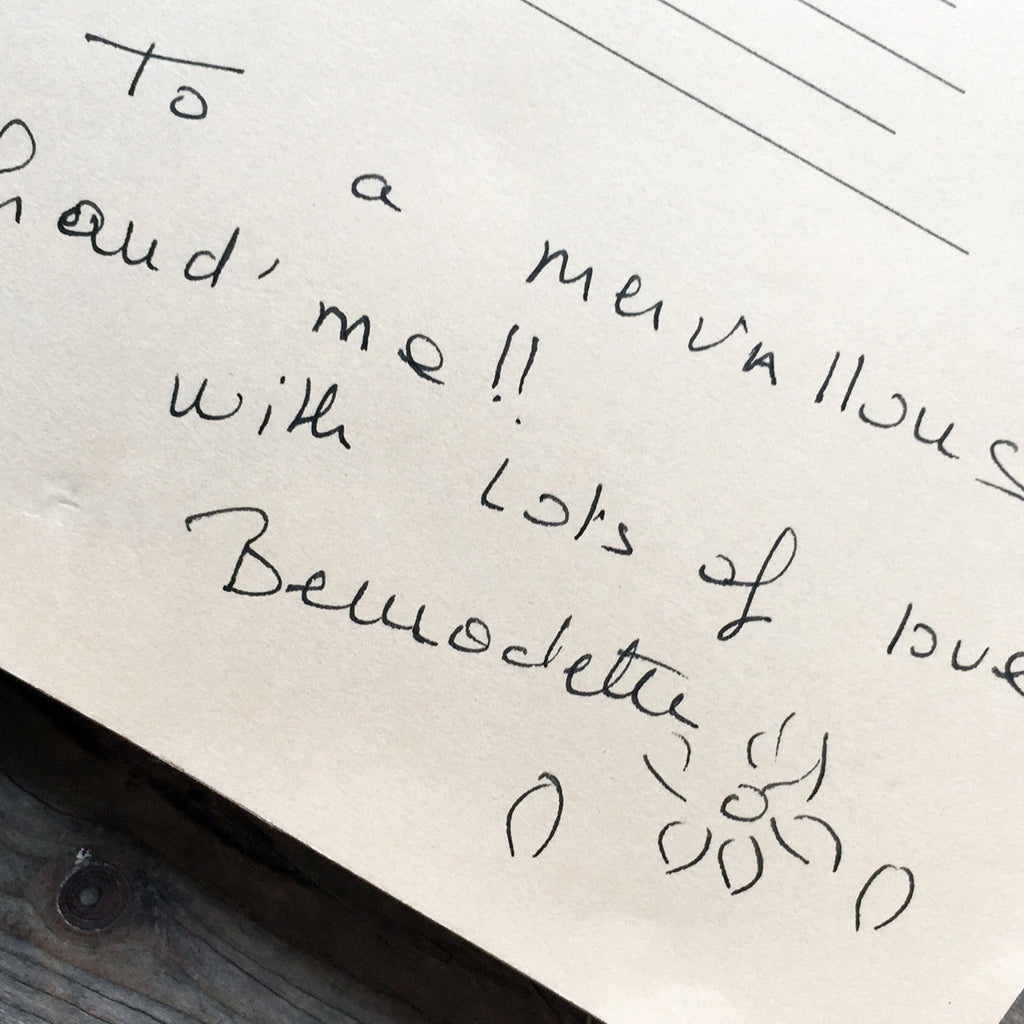 To a mervallous
hand'me!!
with lots of love
Bernadette